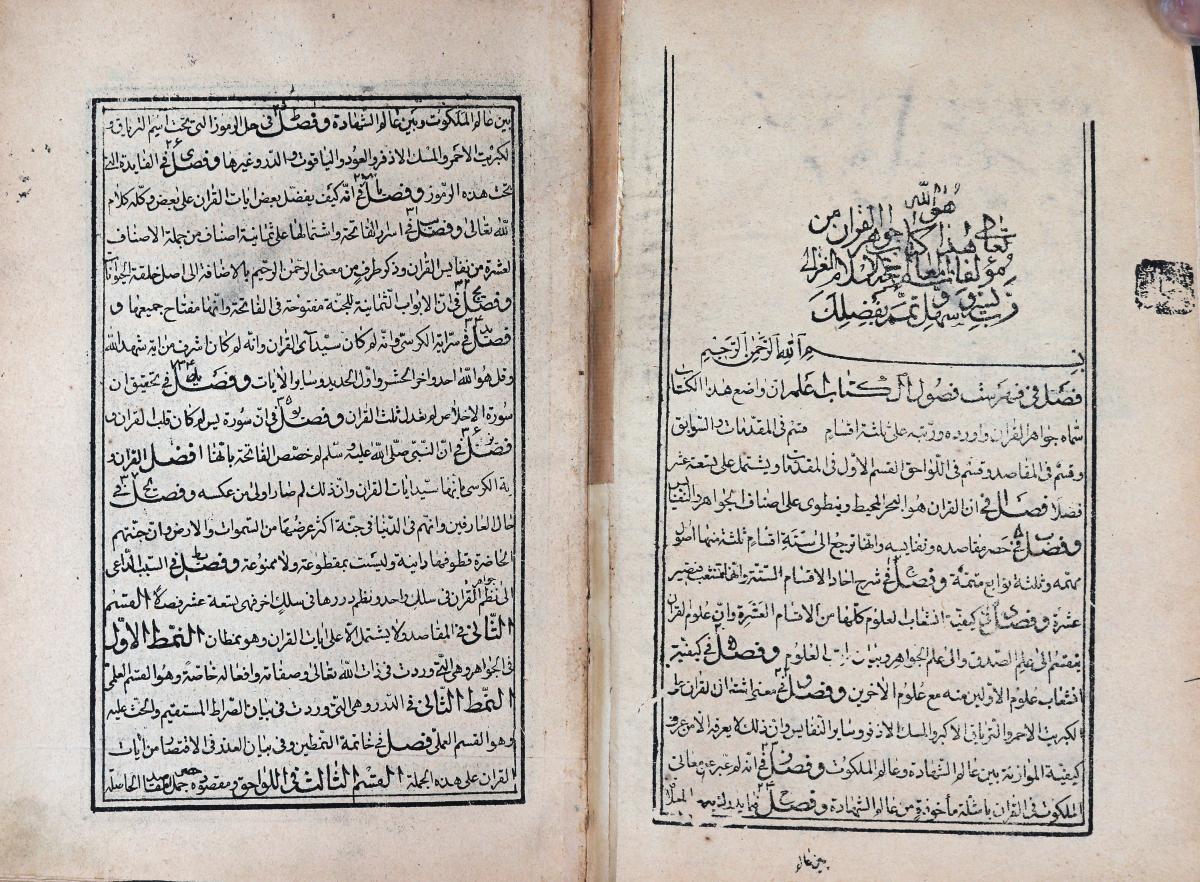 هو الله
تعالى هذا كتاب جواهر القران من
مؤلفات حجة الاسلام الغزالى
رب يسر وسهل وتمم بفضلك
بسم الله الرحمن الرحيم
فصل فى فهرست فصول الكتاب اعلم ان واضع هذا الكتاب
سماه جواهر القران واورده ورتبه على ثلثة اقسام قسم فى المقدمات والسوابق
وقسم فى المقاصد وقسم فى اللواحق القسم الاول فى المقدمات ويشتمل على تسعة عشر
فصلا فصل فى ان القران هو البحر المحيط وينطوى على اصناف الجواهر والنفايس
وفصل فى حصر مقاصده ونفايسه وانها ترجع الى ستة اقسام ثلثة منها اصول
مهمه وثلثة توابع متمة وفصل فى شرح احاد الاقسام الستة وانها تتشعب فيصير
عشرة وفصل فى كيفية انشعاب العلوم كلها من الاقسام العشرة وان علوم القران
ينقسم الى علم الصدف والى علم الجواهر وبيان العلوم وفصل فى كيفية
انشعاب علوم الاولين منه مع علوم الاخرين وفصل فى معنى اشتمال القران على
الكبريت الاحمر والترياق الاكبر والمسك الاذفر وساير النفايس وان ذلك لا يعرفه الا من عرف
كيفية الموازنة بين عالم الشهادة وعالم الملكوت وفصل فى انه لم عبر عن معانى
الملكوت فى القران بامثلة مأخوذة من عالم الشهادة وفصل فيما يدرك به
بين عالم
بين عالم الملكوت وبين عالم الشهادة وفصل فى حل الرموز التى تحت اسم الترياق و
لكبريت الاحمر والمسك الاذفر والعود والياقوت والدر وغيرها وفصل فى الفايدة التى
تحت هذه الرموز وفصل فى انه كيف يفضل بعض ايات القران على بعض وكله كلام
لله تعالى وفصل فى اسرار الفاتحة واشتمالها على ثمانية اصناف من جملة الاصناف
لعشرة من نفايس القران وذكر طرف من معنى الرحمن الرحيم بالاضافة الى اصل خلقة الحيوانات
وفصل فى ان الابواب الثمانية للجنة مفتوحة فى الفاتحة وانها مفتاح جميعها و
فصل فى سر اية الكرسى وانه لم كان سيد آى القران وانه لم كان اشرف من اية شهد الله
وقل هو الله احد واخر الحشر واول الحديد وساير الايات وفصل فى تحقيق ان
سورة الاخلاص لم تعدل ثلث القران وفصل فى ان سورة يس لم كان قلب القران و
فصل فى ان النبى صلى الله عليه وسلم لم خصص الفاتحة بانها افضل القران و
ية الكرسى بانها سيد ايات القران وان ذلك لم صار اولى من عكسه وفصل فى
حال العارفين وانهم فى الدنيا فى جنة اكثر عرضها من السموات والارض وان جنتهم
الحاضرة قطوفها دانية وليست بمقطوعة ولا ممنوعة وفصل فى السبب الداعى
الى نظم جواهر القران فى سلك واحد ونظم دررها فى سلك اخر فهى تسعة عشر فصلا القسم
الثانى فى المقاصد ولا يشتمل الا على ايات القران وهو نمطان النمط الاول
فى الجواهر وهى التى وردت فى ذات الله تعالى وصفاته وافعاله خاصة وهو القسم العلمى
النمط الثانى فى الدرر وهى التى وردت فى بيان الصراط المستقيم والحث عليه
وهو القسم العملى فصل فى خاتمة النمطين وفى بيان العذر فى الاقتصار من ايات
القران على هذه الجملة القسم الثالث فى اللواحق ومقصوده حصر جمل المقاصد الحاصلة